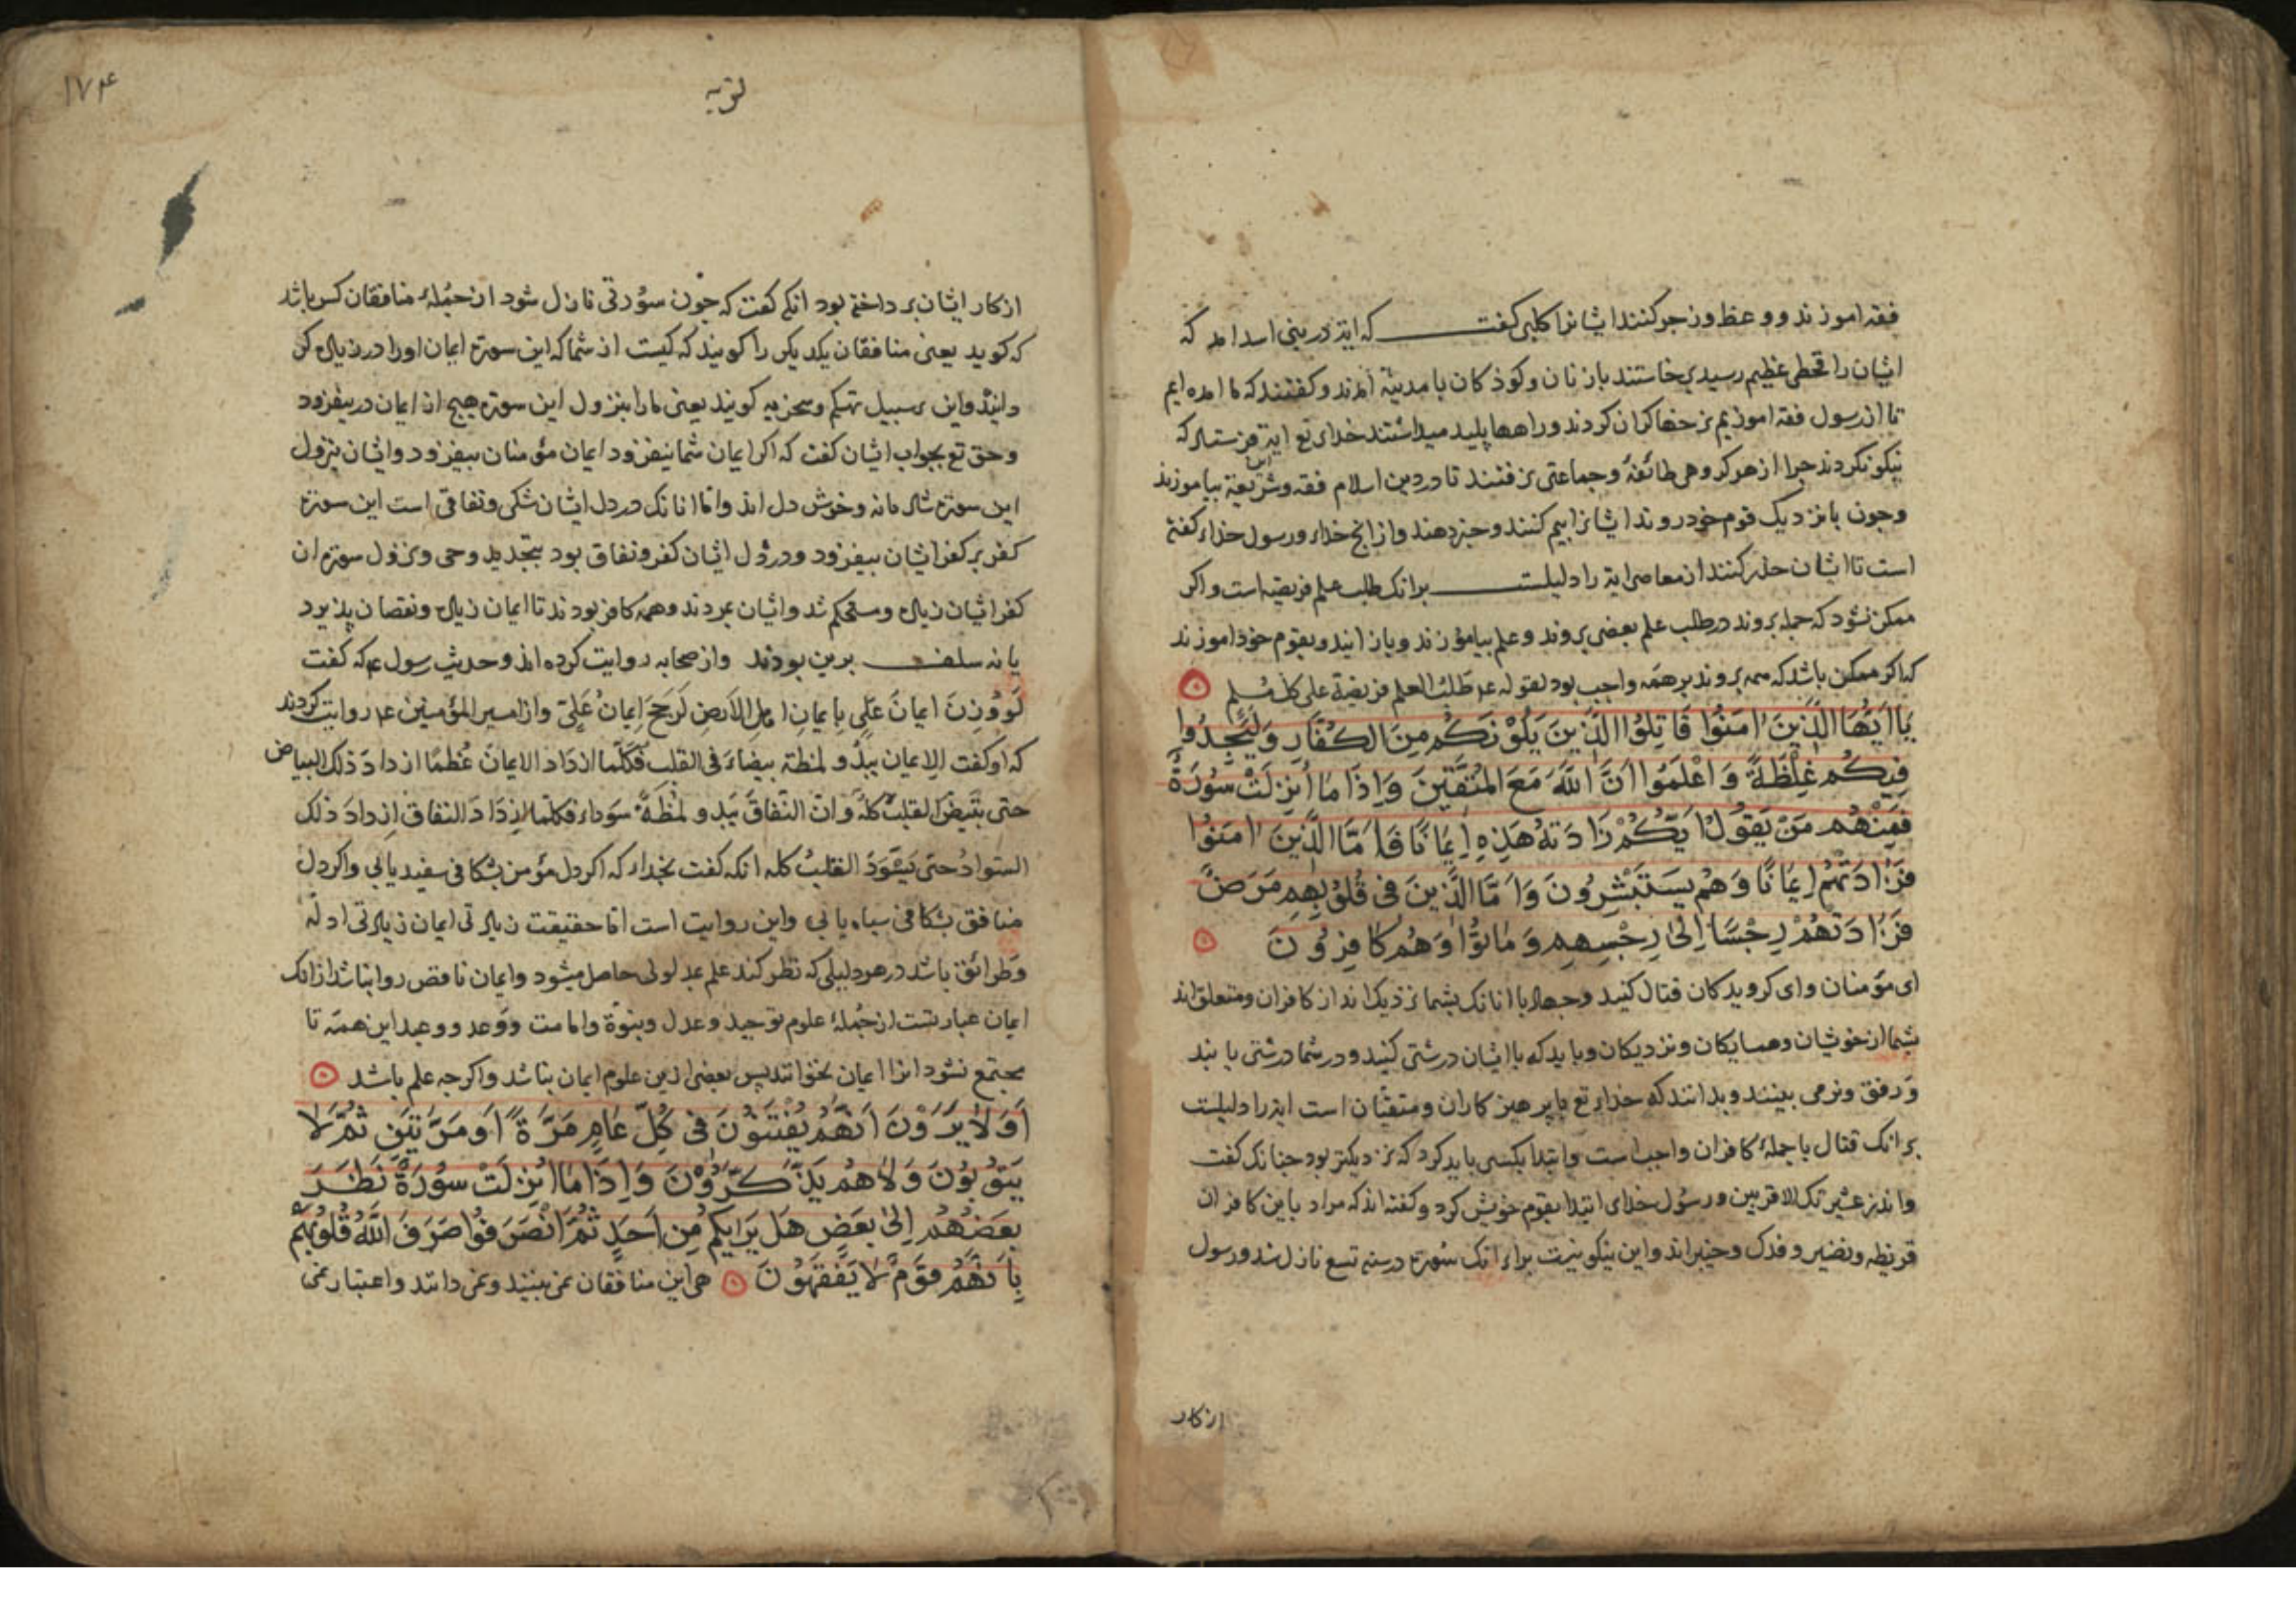 فقه اموزند و وعظ و زجر کنند ایشانرا کلبی کفت که ایة در بنی اسد امد که
ایشان را قحطی عظیم رسید برخاستند بازنان و کوذکان با مدینة آمدند و کفتند که ما امده ایم
تا از رسول فقه اموزیم نرخها کران کردند و راهها پلید میداشتند خدای تع ایة فرستاد که
نیکو نکردند جرا از هر کروهی طائفهٔ و جماعتی نرفتند تا در دین اسلام فقه و شریعة بیاموزند
وجون بانزدیک قوم خود روند ایشانرا بیم کنند و خبر دهند و از انج خدا و رسول خدا کفته
است تا ایشان حذر کنند از معاصی ایة را دلیلست برانک طلب علم فریضه است و اکر
ممکن نشود که جمله بروند در طلب علم بعضی بروند و علم بیاموزند و باز ایند و بقوم خوذ اموزند
که اکر ممکن باشد که همه بروند بر همه واجب بود لقوله عم طَلَبُ العلم فریضة علی کل مُسلمٍ
یَا اَیُّهَا الَّذِینَ اٰمَنُوا قَاتِلُوا الَّذِینَ یَلُوْنَکُمْ مِنَ الکُفَّارِ وَلْیَجِدُوا
فِیکُم غِلْظَةً وَ اعْلَمُوا اَنَّ اللّٰهَ مَعَ المُتَّقِینَ وَاِذَا مَا اُنزِلَتْ سُورَةٌ
فَمِنْهُم مَنْ یَقُولُ اَیُّکُمْ زَادَتهُ هٰذِهِ اِیمَانًا فَاَمَّا الَّذِینَ اٰمَنُوا
فَزَادَتْهُم اِیمَانًا وَهُم یَستَبْشِرُونَ وَاَمَّا الَّذِینَ فِی قُلُوبِهِم مَرَضٌ
فَزَادَتهُمْ رِجْسًا اِلیٰ رِجْسِهِم وَمَاتُوْا وَهُم کَافِرُونَ
ای مؤمنان و ای کرویدکان قتال کنید و جهاد با انانک بشما نزذیک اند از کافران و متعلق اند
بشما از خوشان و همسایکان و نزدیکان و باید که با ایشان درشتی کنید و در شما درشتی یابند
و رفق و نرمی نبینند و بدانند که خدای تع با پرهیزکاران و متقیان است ایة را دلیلست
برانک قتال با جملهٔ کافران واجب است و ابتدا بکسی باید کرد که نزدیکتر بود جنانک کفت
و انذر عشیرتک الاقربین و رسول خدای ابتدا بقوم خویش کرد و کفته اند که مراد باین کافران
قریظه و نضیر و فدک و خیبر اند و این نیکو نیست برای انک سُورة در سنه تسع نازل شد و رسول
از کار
توبه
۱۷۴
از کار ایشان برداخته بود انکه کفت که جون سوُرتی نازل شود از جُملهٔ منافقان کس باشد
که کوید یعنی منافقان یکدیکر را کویند که کیست از شما که این سورة ایمان اورا در زیادی کن
دانند و این بر سبیل تهکم و سخریه کویند یعنی مارا بنزول این سورة هیج از ایمان در نیفزود
و حق تع بجواب ایشان کفت که اکر ایمان شما نیفزود ایمان مؤمنان بیفزود و ایشان بنزول
این سورة شادمانه و خوش دل اند و اما انانک در دل ایشان شکی و نفاقی است این سورة
کفر بر کفر ایشان بیفزود و در دل ایشان کفر و نفاق بود بتجدید وحی و نزول سورة ان
کفر ایشان زیاد و مستحکم شد و ایشان بمردند و همه کافر بودند تا ایمان زیاد و نقصان پذیرد
یا نه سلف برین بودند و از صحابه روایت کرده اند و حدیث رسول عم که کفت
لَو وُزِنَ ایمانَ عَلیٍ بِایمانِ اهلِ الاَرضِ لَرَجَحَ اِیمانُ عَلِیّ و از امیر المؤمنین عم روایت کردند
که او کفت الاِیمان یبدُو لمظة بیضاءَ فی القلب فَکلّما ازدَاد الایمانُ عُظمًا ازدادَ ذلک البیاض
حتی یبیَضّ القلبُ کلُهُ وانّ النّفاقَ یَبدو لمُظَةً سَوداء فکلّما ازدَادَ النفاق اِزدادَ ذلک
السّوادُ حتی یَسْوَدّ القلبُ کله انکه کفت بخدا که اکر دل مؤمن بشکافی سفید یابی و اکر دل
منافق بشکافی سیاه یابی و این روایت است اما حقیقت زیادتی ایمان زیادتی ادله
و طرائق باشد در هر دلیلی که نظر کند علم بمدلولی حاصل میشود و ایمان ناقص روا نباشد از انک
ایمان عبارتست از جُملهٔ علوم توحید و عدل و نبوّة و امامت و وَعد و وعید این همه تا
مجتمع نشود انرا ایمان نخوانند پس بعضی ازین علوم ایمان نباشد و اکرجه علم باشد
اَوَلَا یَرَوْنَ اَنَّهُم یُفْتَنُونَ فِی کُلِّ عَامٍ مَرَّةً اَو مَرَّتَیْنِ ثُمَّ لَا
یَتُوبُونَ وَلَا هُم یَذَّکَّرُوْنَ وَاِذَا مَا اُنزِلَتْ سُورَةٌ نَظَرَ
بَعضُهُم اِلیٰ بَعضٍ هَل یَرَایکُم مِن اَحَدٍ ثُمَّ انْصَرَفُوْا صَرَفَ اللّٰهُ قُلُوبَهُم
بِاَنَّهُم قَومٌ لَا یَفْقَهُونَ هی این منافقان نمی بینند و نمی دانند و اعتبار نمی